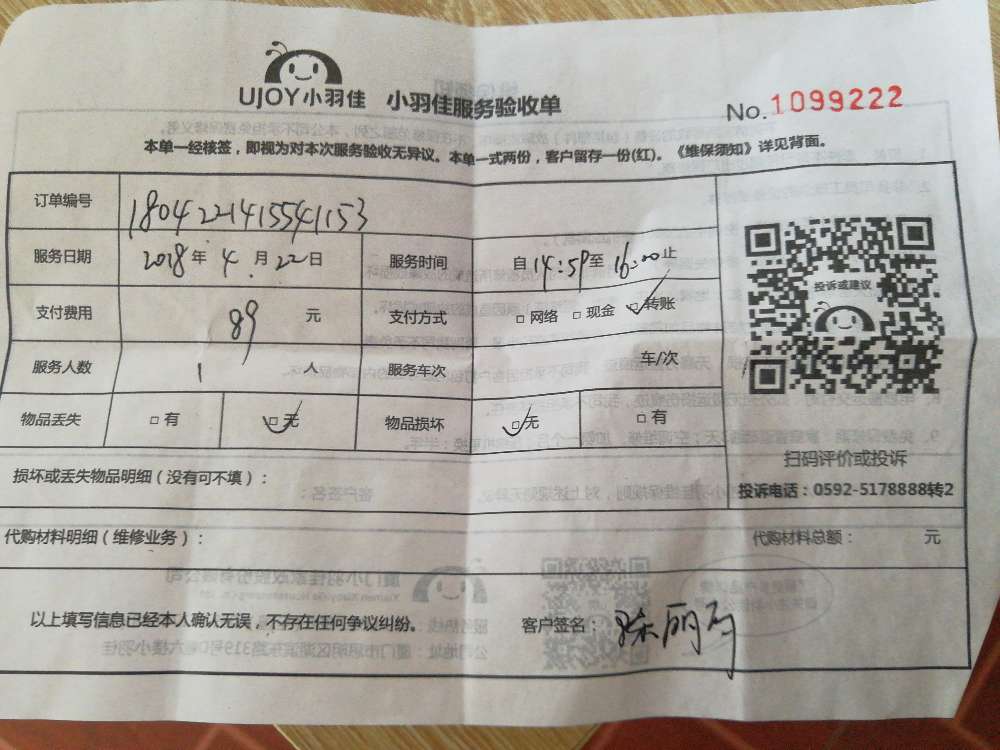 UJOY小羽佳 小羽佳服务验收单
No.1099222
本单一经核签，即视为对本次服务验收无异议。本单一式两份，客户留存一份(红)。《维保须知》详见背面。
订单编号 180422141554 1153
服务日期 2018年4月22日 服务时间 自14:59至16:00止
支付费用 89 元 支付方式 □ 网络 □ 现金 □ 转账
服务人数 1 人 服务车次 车/次
物品丢失 □ 有 □ 无 物品损坏 □ 无 □ 有
投诉或建议
扫码评价或投诉
投诉电话：0592-5178888转2
损坏或丢失物品明细（没有可不填）：
代购材料明细（维修业务）： 代购材料总额： 元
以上填写信息已经本人确认无误，不存在任何争议纠纷。 客户签名：